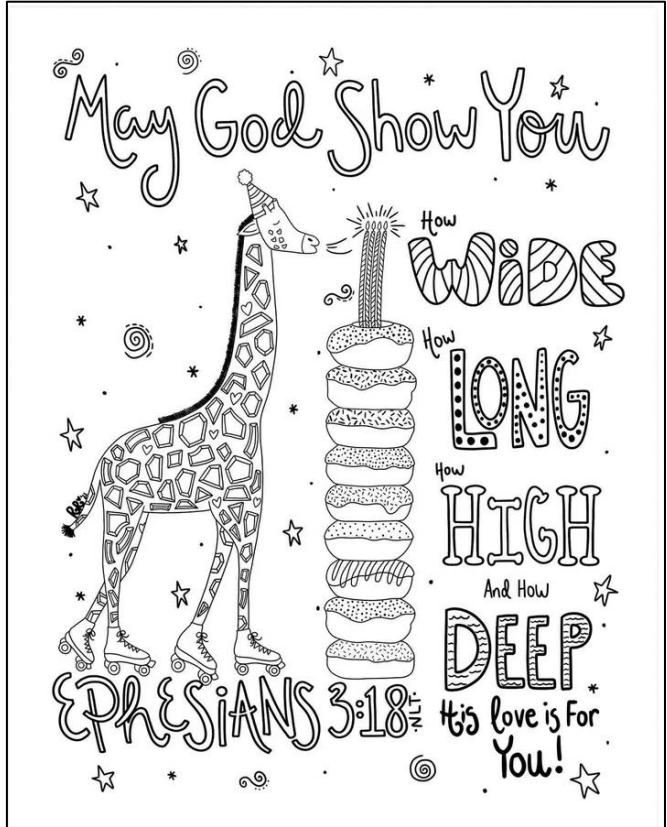 May God Show You
How
WiDE
How
LONG
How
HIGH
And How
DEEP
His love is For
You!
EPhESiANS 3:18 NLT